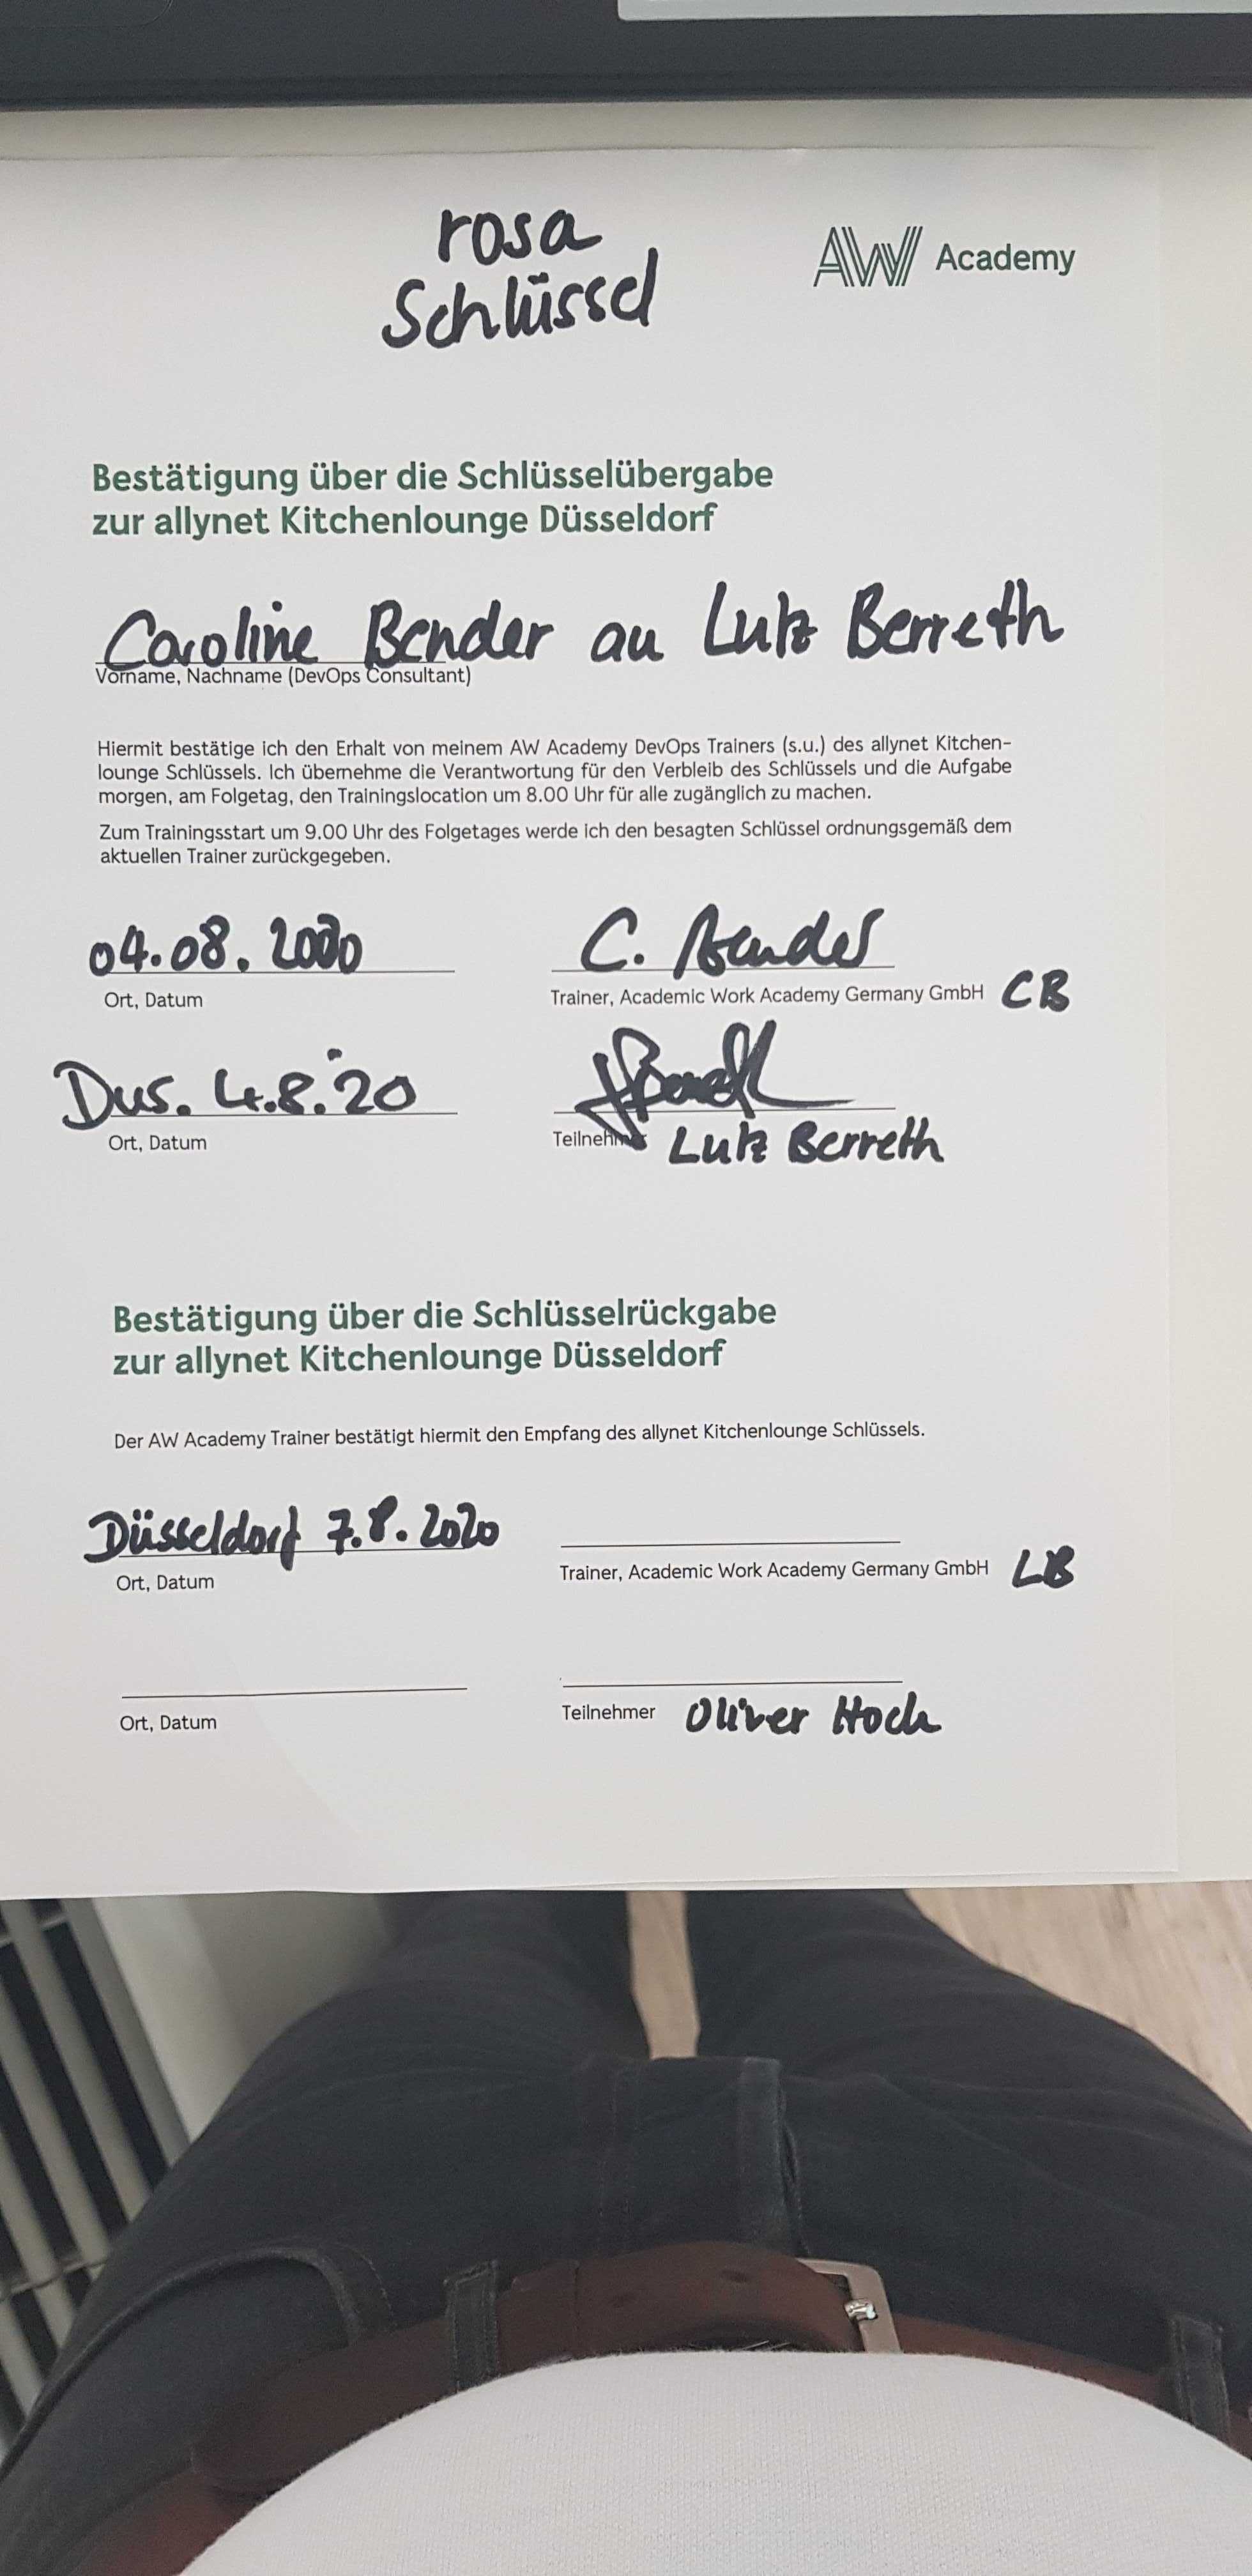 rosa
Schlüssel
AW Academy
Bestätigung über die Schlüsselübergabe
zur allynet Kitchenlounge Düsseldorf
Caroline Bender an Lutz Berreth
Vorname, Nachname (DevOps Consultant)
Hiermit bestätige ich den Erhalt von meinem AW Academy DevOps Trainers (s.u.) des allynet Kitchen-
lounge Schlüssels. Ich übernehme die Verantwortung für den Verbleib des Schlüssels und die Aufgabe
morgen, am Folgetag, den Trainingslocation um 8.00 Uhr für alle zugänglich zu machen.
Zum Trainingsstart um 9.00 Uhr des Folgetages werde ich den besagten Schlüssel ordnungsgemäß dem
aktuellen Trainer zurückgegeben.
04.08.2020 C. Bender
Ort, Datum Trainer, Academic Work Academy Germany GmbH CB
Dus. 4.8.'20
Ort, Datum Teilnehmer Lutz Berreth
Bestätigung über die Schlüsselrückgabe
zur allynet Kitchenlounge Düsseldorf
Der AW Academy Trainer bestätigt hiermit den Empfang des allynet Kitchenlounge Schlüssels.
Düsseldorf 7.8.2020
Ort, Datum Trainer, Academic Work Academy Germany GmbH LB
Ort, Datum Teilnehmer Oliver Hoch